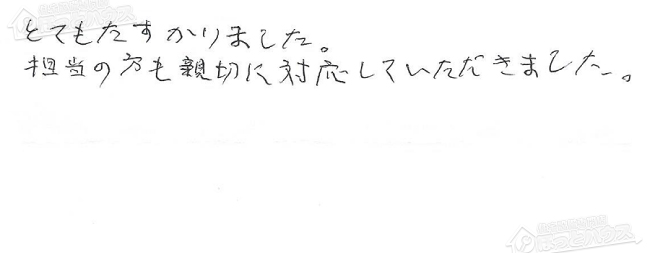 とてもたすかりました。
担当の方も親切に対応していただきました。